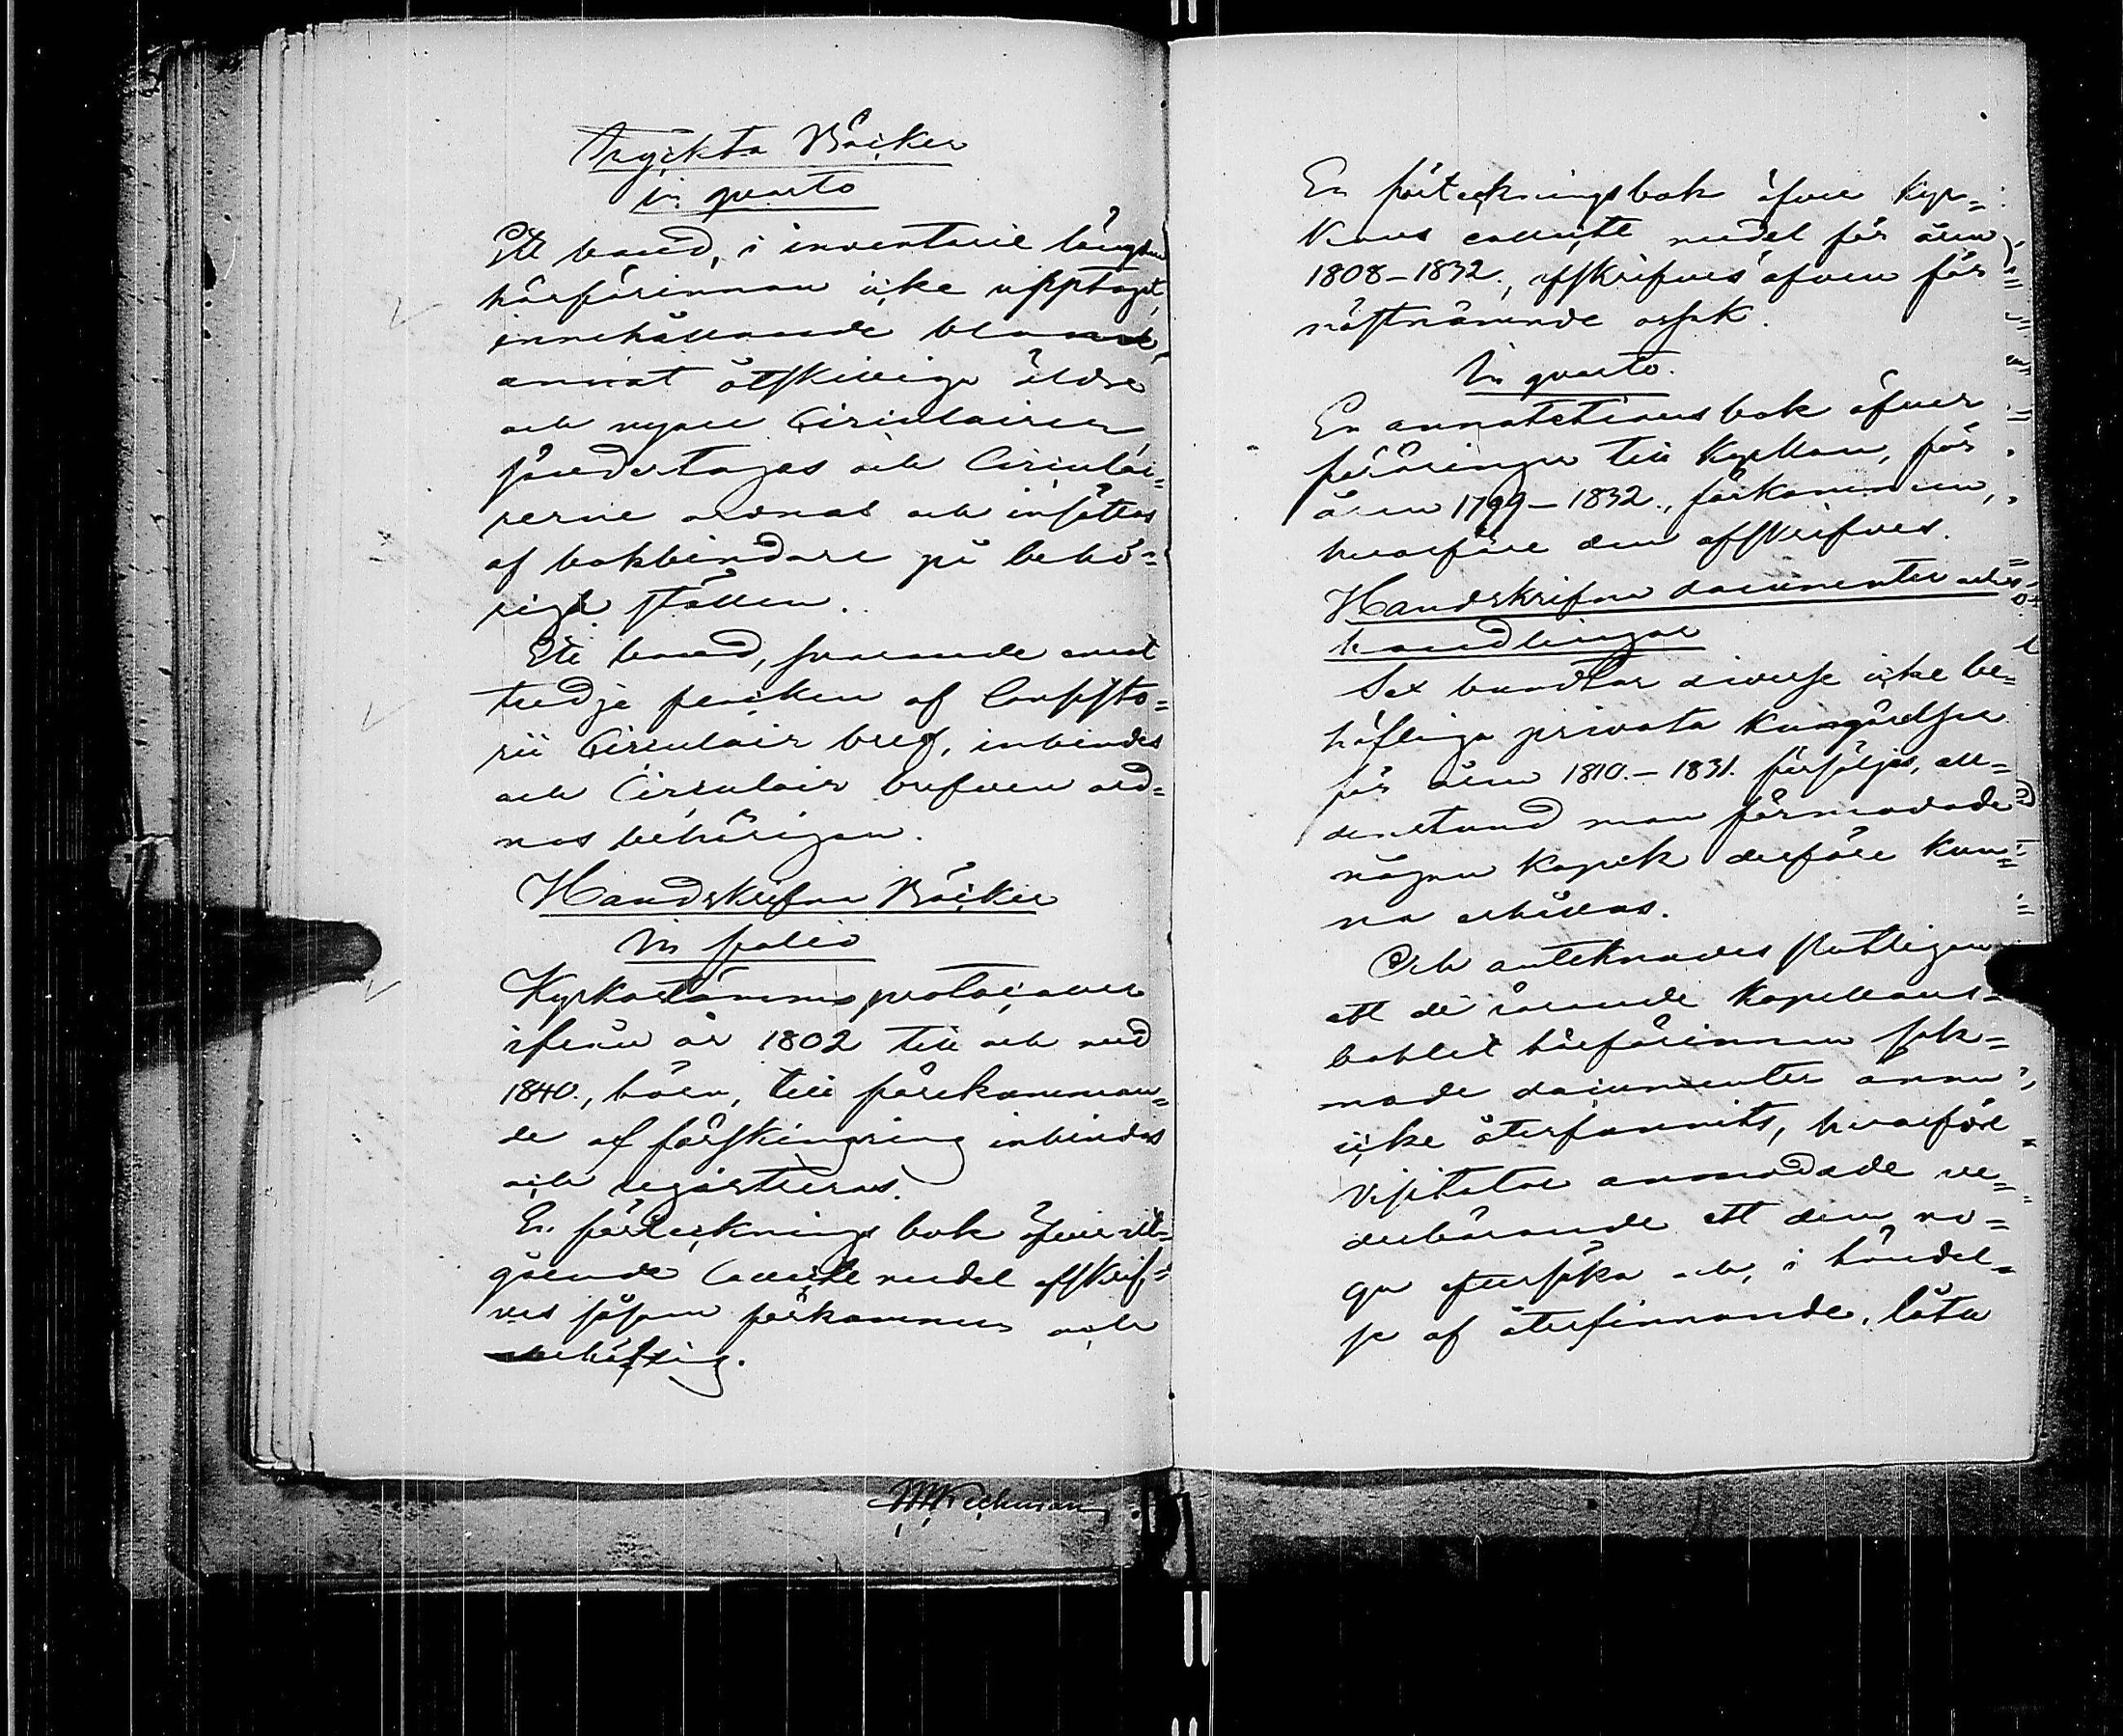 Tryckta Böcker
in quarto
Ett band, i inventarie längden
härförinnan icke upptaget,
innehållande bland
annat åtskilliga äldre
och nyare Circulairer,
söndertages och Circulai=
rerne ordnas och insättas
af bokbindare på behö=
riga ställen.
Ett band, svarande emot
tredje packen af Consisto=
rii Circulair bref, inbindes
och Circulair brefven ord=
nas behörigen.
Handskrifna Böcker
in folio
Kyrkostämmo protocoller
ifrån år 1802 till och med
1840., böra, till förekomman=
de af förskingring inbindas
och registreras.
En förtecknings bok öfver ut=
gående Collecte medel afskrif=
ves såsom förkommen och
behöflig.
En förteckningsbok öfver kyr=
kans collecte medel för åren
1808-1832., afskrifves äfven för
nästnämnde orsak.
In quarto.
En annotationsbok öfver
föräringar till kyrkan, för
åren 1799-1832., förkommen,
hvarföre den afskrifves.
Handskrifna documenter och
handlingar
Sex bundtar diverse icke be=
höfliga privata kungörelser
för åren 1810.-1831. försäljes, all=
denstund man förmodade
någon kopek derföre kun=
na erhållas.
Och antecknades slutligen
att de rörande Kapellans=
bohlet härförinnan sak=
nade documenter ännu
icke återfunnits, hvarföre
Visitator anmodade ve=
derbörande att dem no=
ga eftersöka och, i händel=
se af återfinnande, låta